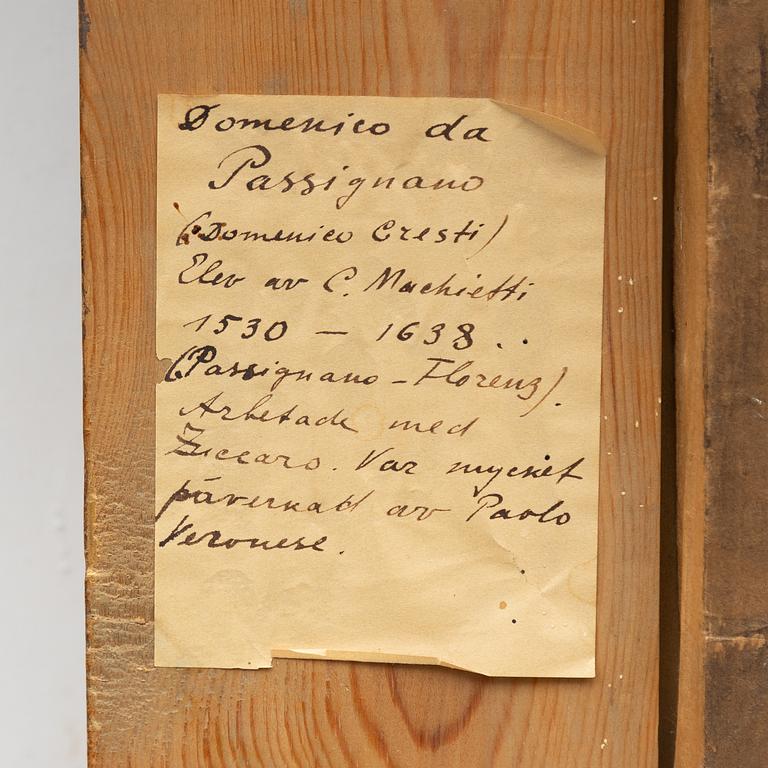 Domenico da
Passignano
(Domenico Cresti)
Elev av C. Machietti
1530 — 1638 ..
(Passignano - Florenz).
Arbetade med
Zuccaro. Var mycket
påverkad av Paolo
Veronese.